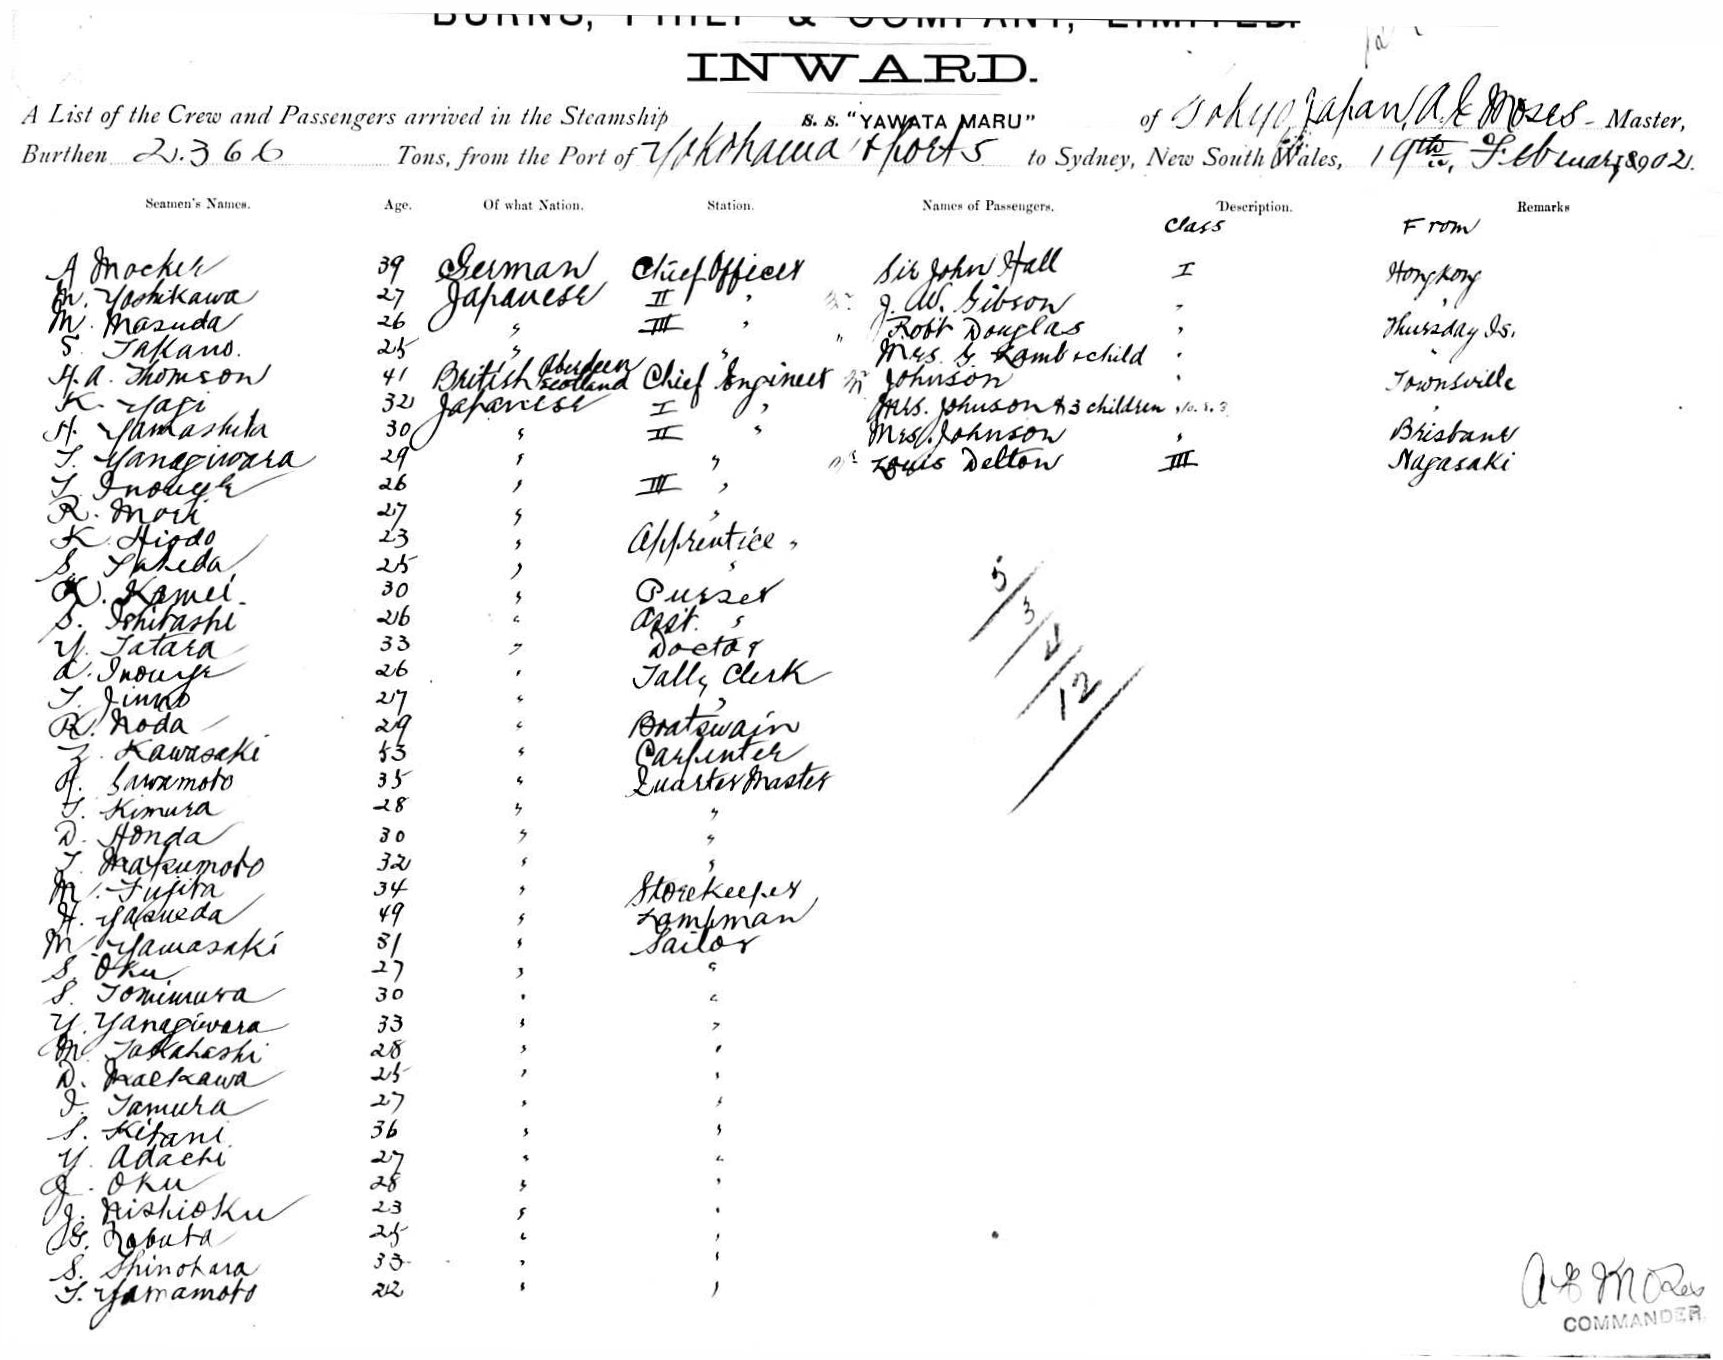 BURNS, PHILP & COMPANY, LIMITED.
INWARD.
A List of the Crew and Passengers arrived in the Steamship S. S. "YAWATA MARU" of Tokyo, Japan, A. E. Moses Master,
Burthen 2.366 Tons, from the Port of Yokohama & ports to Sydney, New South Wales, 19th February 1902.
Seamen's Names. Age. Of what Nation. Station. Names of Passengers. Description. Remarks
Class From
A Mocker 39 German Chief Officer Sir John Hall I Hongkong
M. Yoshikawa 27 Japanese II " Mr J. W. Gibson " "
M. Masuda 26 " III " " Robt Douglas " Thursday Is.
S. Takano. 25 " " Mrs. G. Lamb & child " "
H. A. Thomson 41 British Aberdeen Scotland Chief Engineer Mr Johnson " Townsville
K. Yagi 32 Japanese I " Mrs. Johnson & 3 children "
H. Yamashita 30 " II " Mrs. Johnson " Brisbane
T. Yanagiwara 29 " " Mr Louis Delton III Nagasaki
T. Inouye 26 " III "
R. Mori 27 " "
K. Hiodo 23 " Apprentice "
S. Takeda 25 " "
K. Kamei 30 " Purser
S. Ishibashi 26 " Asst. "
Y. Tatara 33 " Doctor
Inouye 26 " Tally Clerk
T. Jinno 27 " "
R. Noda 29 " Boatswain
Z. Kawasaki 53 " Carpenter
H. Sawamoto 35 " Quarter Master
T. Kimura 28 " "
D. Honda 30 " "
T. Matsumoto 32 " "
M. Fujita 34 " Storekeeper
H. Yasueda 49 " Lampman
M. Yamasaki 31 " Sailor
S. Oku 27 " "
S. Tomimura 30 " "
Y. Yanagiwara 33 " "
M. Takahashi 28 " "
D. Maekawa 25 " "
I. Tamura 27 " "
S. Kitani 36 " "
Y. Adachi 27 " "
J. Oku 28 " "
J. Nishioku 23 " "
G. Nobuta 25 " "
S. Shinohara 33 " "
T. Yamamoto 22 " "
5/3/8/12/
A E Moses
COMMANDER.